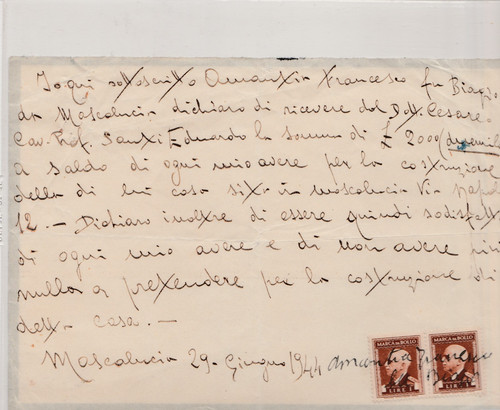 Io qui sottoscritto Amantia Francesco fu Biagio
da Mascalucia dichiaro di ricevere dal Dott. Cesare
Cav. Prof. Santi Eduardo la somma di £ 2000 (duemila
a saldo di ogni mio avere per la costruzione
della di lui casa sita in Mascalucia Via
12. — Dichiaro inoltre di essere quindi sodisfatt
di ogni mio avere e di non avere
nulla a pretendere per la costruzione di
detta casa. —
Mascalucia 29. Giugno 1944 Amantia Francesco
MARCA DA BOLLO MARCA DA BOLLO
LIRE 1 LIRE 1